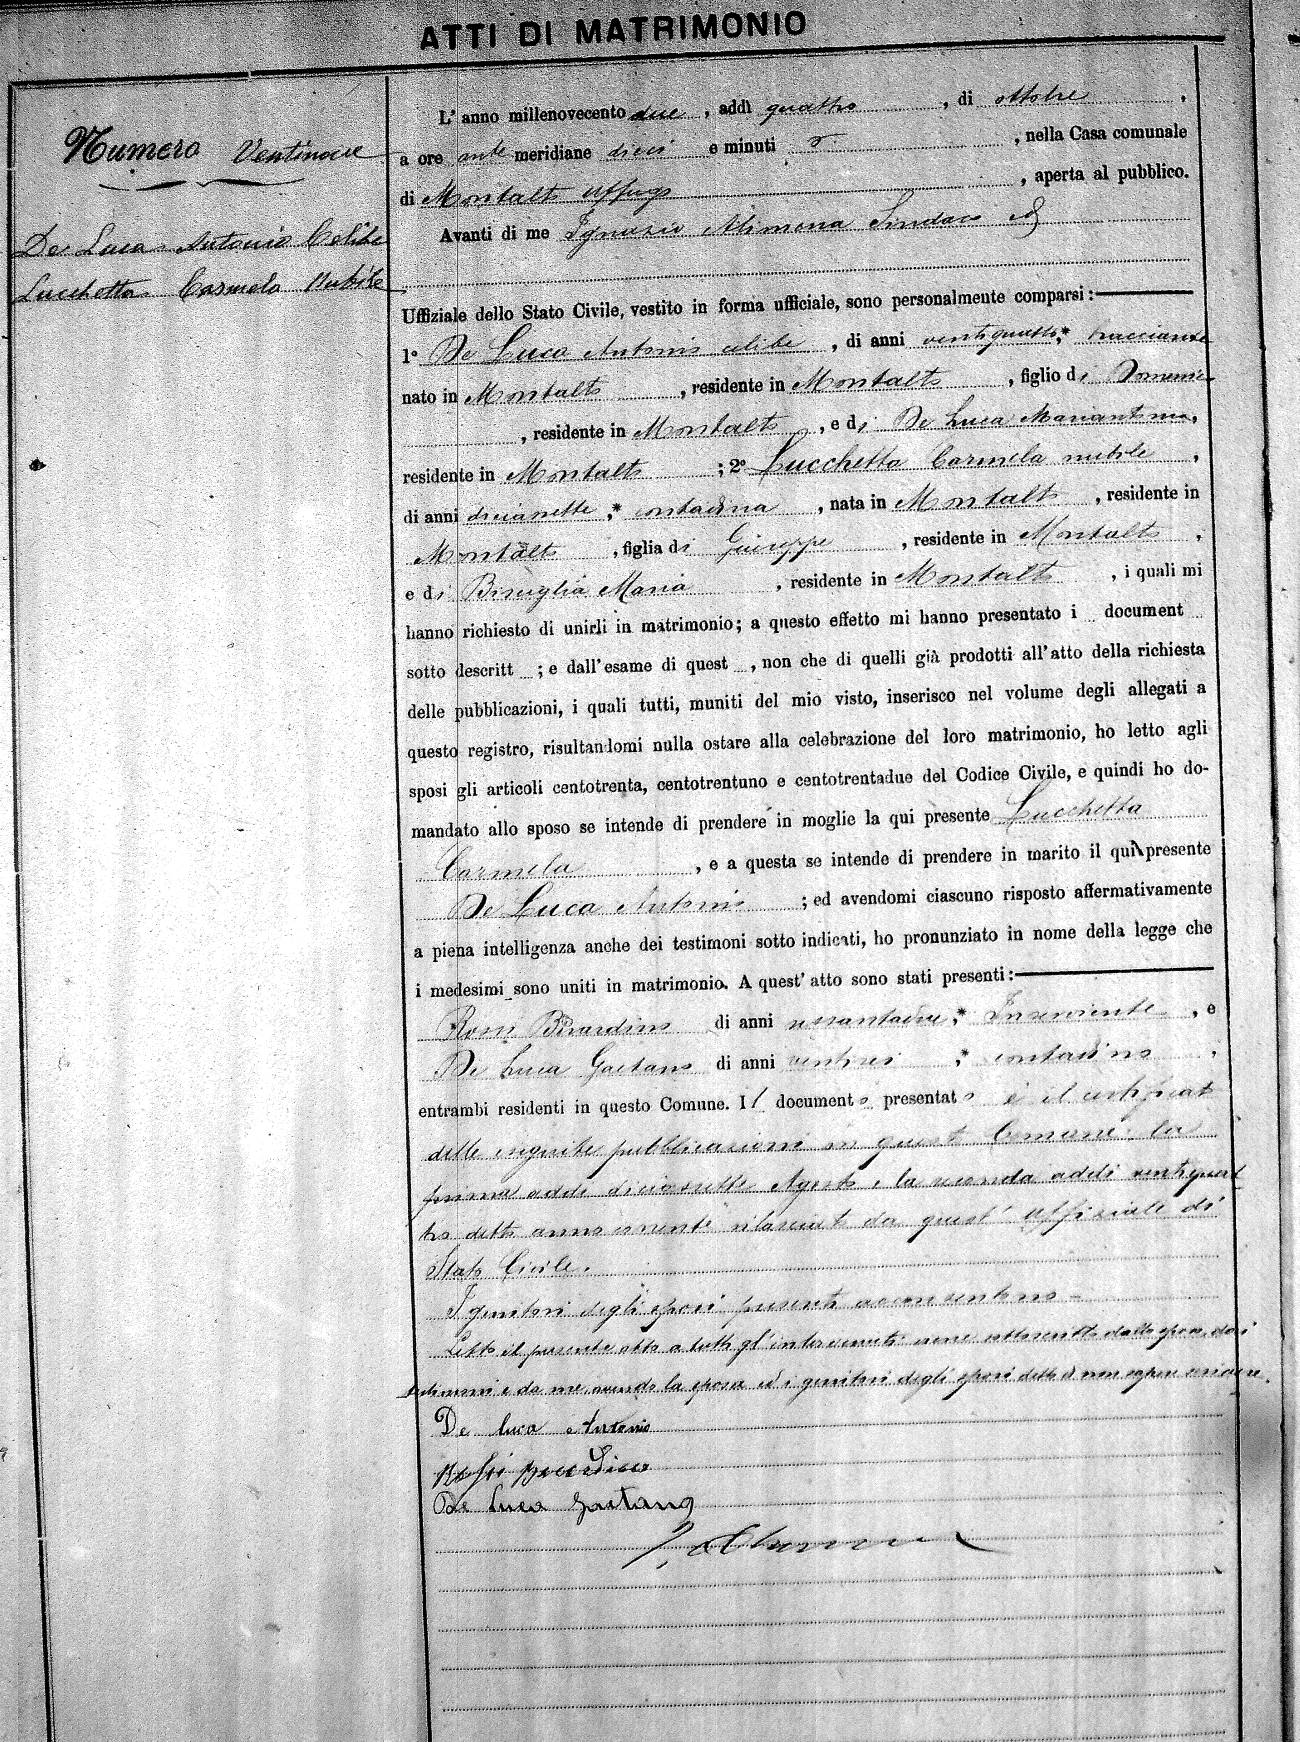 ATTI DI MATRIMONIO
Numero Ventinove
De Luca Antonio Celibe
Lucchetta Carmela Nubile
L'anno millenovecento due, addì quattro, di ottobre,
a ore ante meridiane dieci e minuti, nella Casa comunale
di Montalto Uffugo, aperta al pubblico.
Avanti di me Ignazio Alimena Sindaco ed
Uffiziale dello Stato Civile, vestito in forma ufficiale, sono personalmente comparsi:
1° De Luca Antonio celibe, di anni ventiquattro,* bracciante
nato in Montalto, residente in Montalto, figlio di Domenico
, residente in Montalto, e di De Luca Mariantonia,
residente in Montalto; 2° Lucchetta Carmela nubile,
di anni diciasette,* contadina, nata in Montalto, residente in
Montalto, figlia di Giuseppe, residente in Montalto,
e di Bisciglia Maria, residente in Montalto, i quali mi
hanno richiesto di unirli in matrimonio; a questo effetto mi hanno presentato i document
sotto descritt ; e dall'esame di quest , non che di quelli già prodotti all'atto della richiesta
delle pubblicazioni, i quali tutti, muniti del mio visto, inserisco nel volume degli allegati a
questo registro, risultandomi nulla ostare alla celebrazione del loro matrimonio, ho letto agli
sposi gli articoli centotrenta, centotrentuno e centotrentadue del Codice Civile, e quindi ho do-
mandato allo sposo se intende di prendere in moglie la qui presente Lucchetta
Carmela, e a questa se intende di prendere in marito il qui presente
De Luca Antonio; ed avendomi ciascuno risposto affermativamente
a piena intelligenza anche dei testimoni sotto indicati, ho pronunziato in nome della legge che
i medesimi sono uniti in matrimonio. A quest'atto sono stati presenti:
Rossi Berardino di anni sessantadue,* Inserviente, e
De Luca Gaetano di anni ventisei,* contadino,
entrambi residenti in questo Comune. Il documento presentato è il certificato
delle eseguite pubblicazioni in questo Comune la
prima addi diciassette Agosto e la seconda addi ventiquat
tro detto anno corrente rilasciato da quest'uffiziale di
Stato Civile.
I genitori degli sposi presenti acconsentono
Letto il presente atto a tutti gl'intervenuti viene sottoscritto dallo sposo, dai
testimoni e da me avendo la sposa ed i genitori degli sposi detto di non sapere scrivere.
De luca Antonio
Rossi Berardino
De Luca Gaetano
I. Alimena